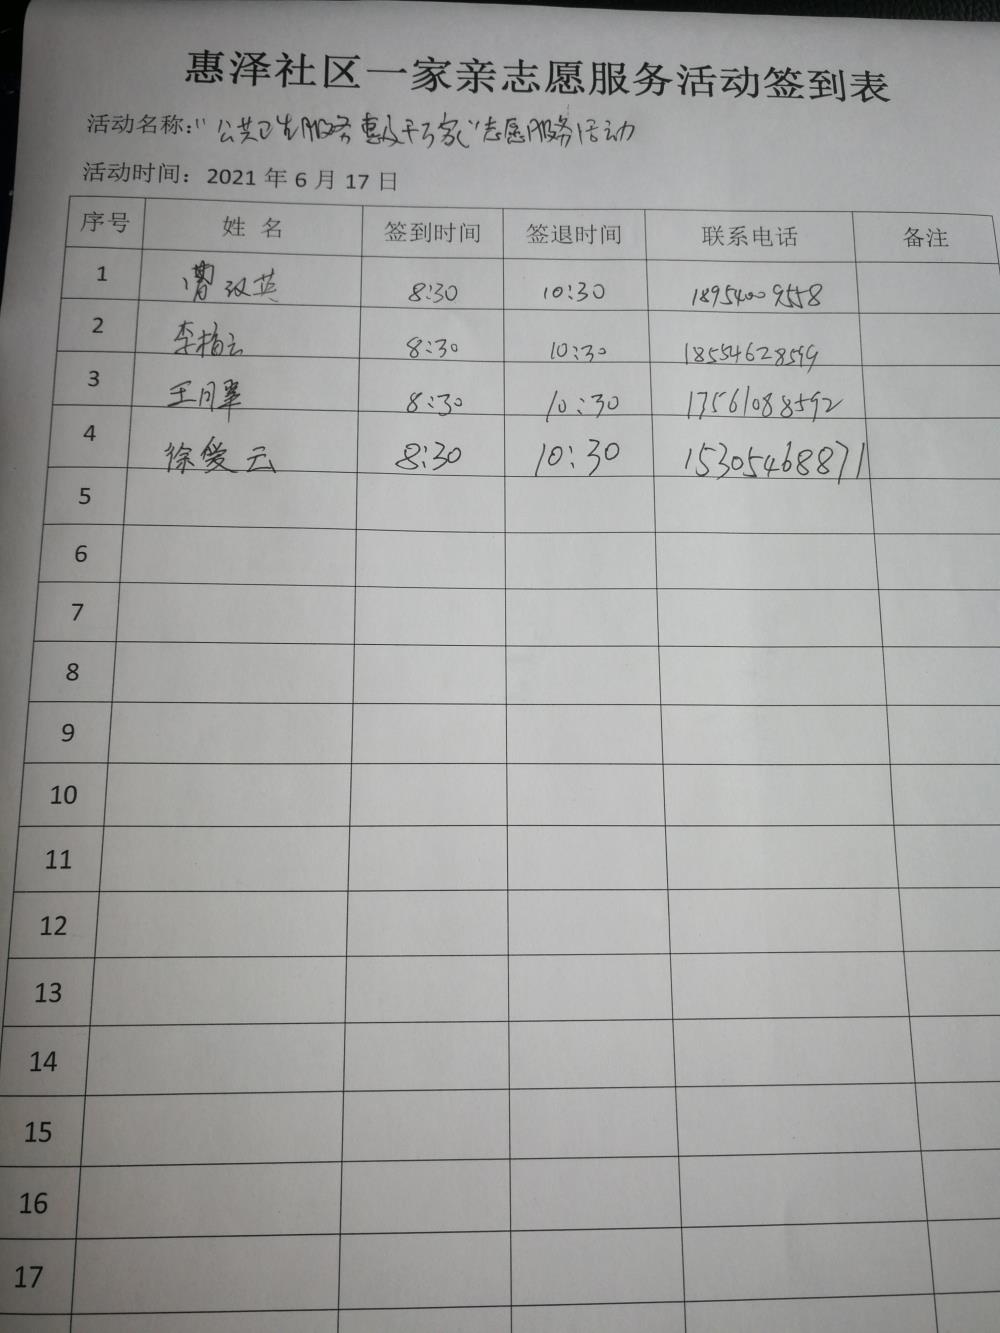 惠泽社区一家亲志愿服务活动签到表
活动名称:“公共卫生服务惠及千万家”志愿服务活动
活动时间: 2021 年 6 月 17 日
序号 姓 名 签到时间 签退时间 联系电话 备注
1 曹汉英 8:30 10:30 18954009558
2 李梅云 8:30 10:30 18554628599
3 王月翠 8:30 10:30 17561088592
4 徐爱云 8:30 10:30 15305468871
5
6
7
8
9
10
11
12
13
14
15
16
17